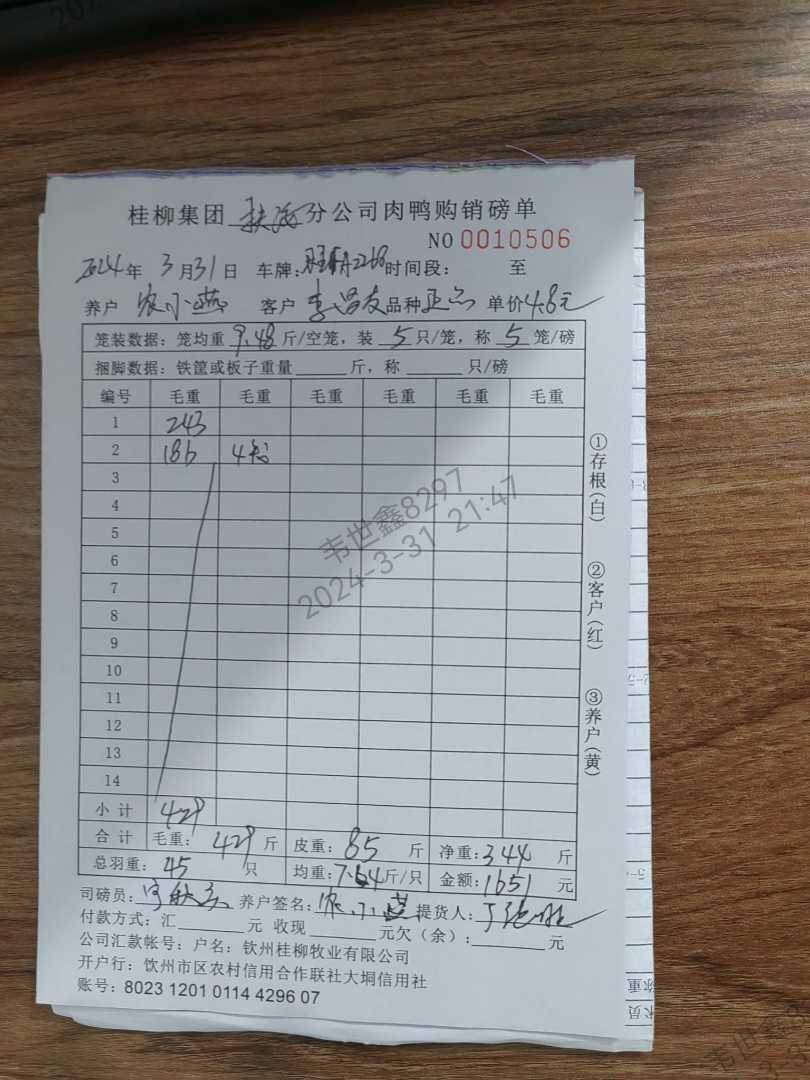 桂柳集团 分公司肉鸭购销磅单
NO 0010506
2024年 3月31日 车牌: 时间段: 至
养户 农小燕 客户 李昌友 品种 正品 单价 4.8元
笼装数据: 笼均重 9.48 斤/空笼, 装 5 只/笼, 称 5 笼/磅
捆脚数据: 铁筐或板子重量 斤, 称 只/磅
编号 毛重 毛重 毛重 毛重 毛重 毛重
1 243
2 186 4
3
4
5
6
7
8
9
10
11
12
13
14
小计 429
合计 毛重: 429 斤 皮重: 85 斤 净重: 344 斤
总羽重: 45 只 均重: 7.64 斤/只 金额: 1651 元
司磅员: 养户签名: 农小燕 提货人:
付款方式: 汇 元 收现 元欠(余): 元
公司汇款帐号: 户名: 钦州桂柳牧业有限公司
开户行: 钦州市区农村信用合作联社大垌信用社
账号: 8023 1201 0114 4296 07
①存根(白)
②客户(红)
③养户(黄)
韦世鑫8297
2024-3-31 21:47